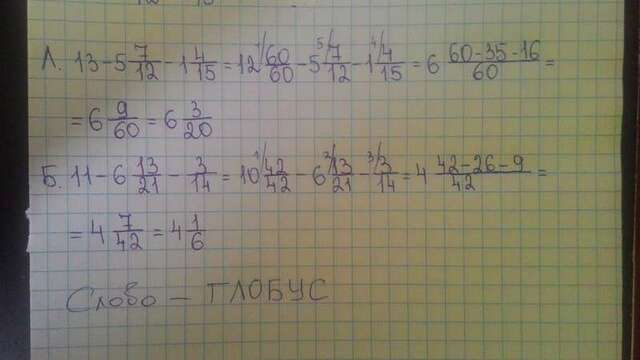 Л. 13 - 5 7/12 - 1 4/15 = 12 60/60 - 5 7/12 - 1 4/15 = 6 (60-35-16)/60 =
= 6 9/60 = 6 3/20
Б. 11 - 6 13/21 - 3/14 = 10 42/42 - 6 13/21 - 3/14 = 4 (42-26-9)/42 =
= 4 7/42 = 4 1/6
Слово — ГЛОБУС